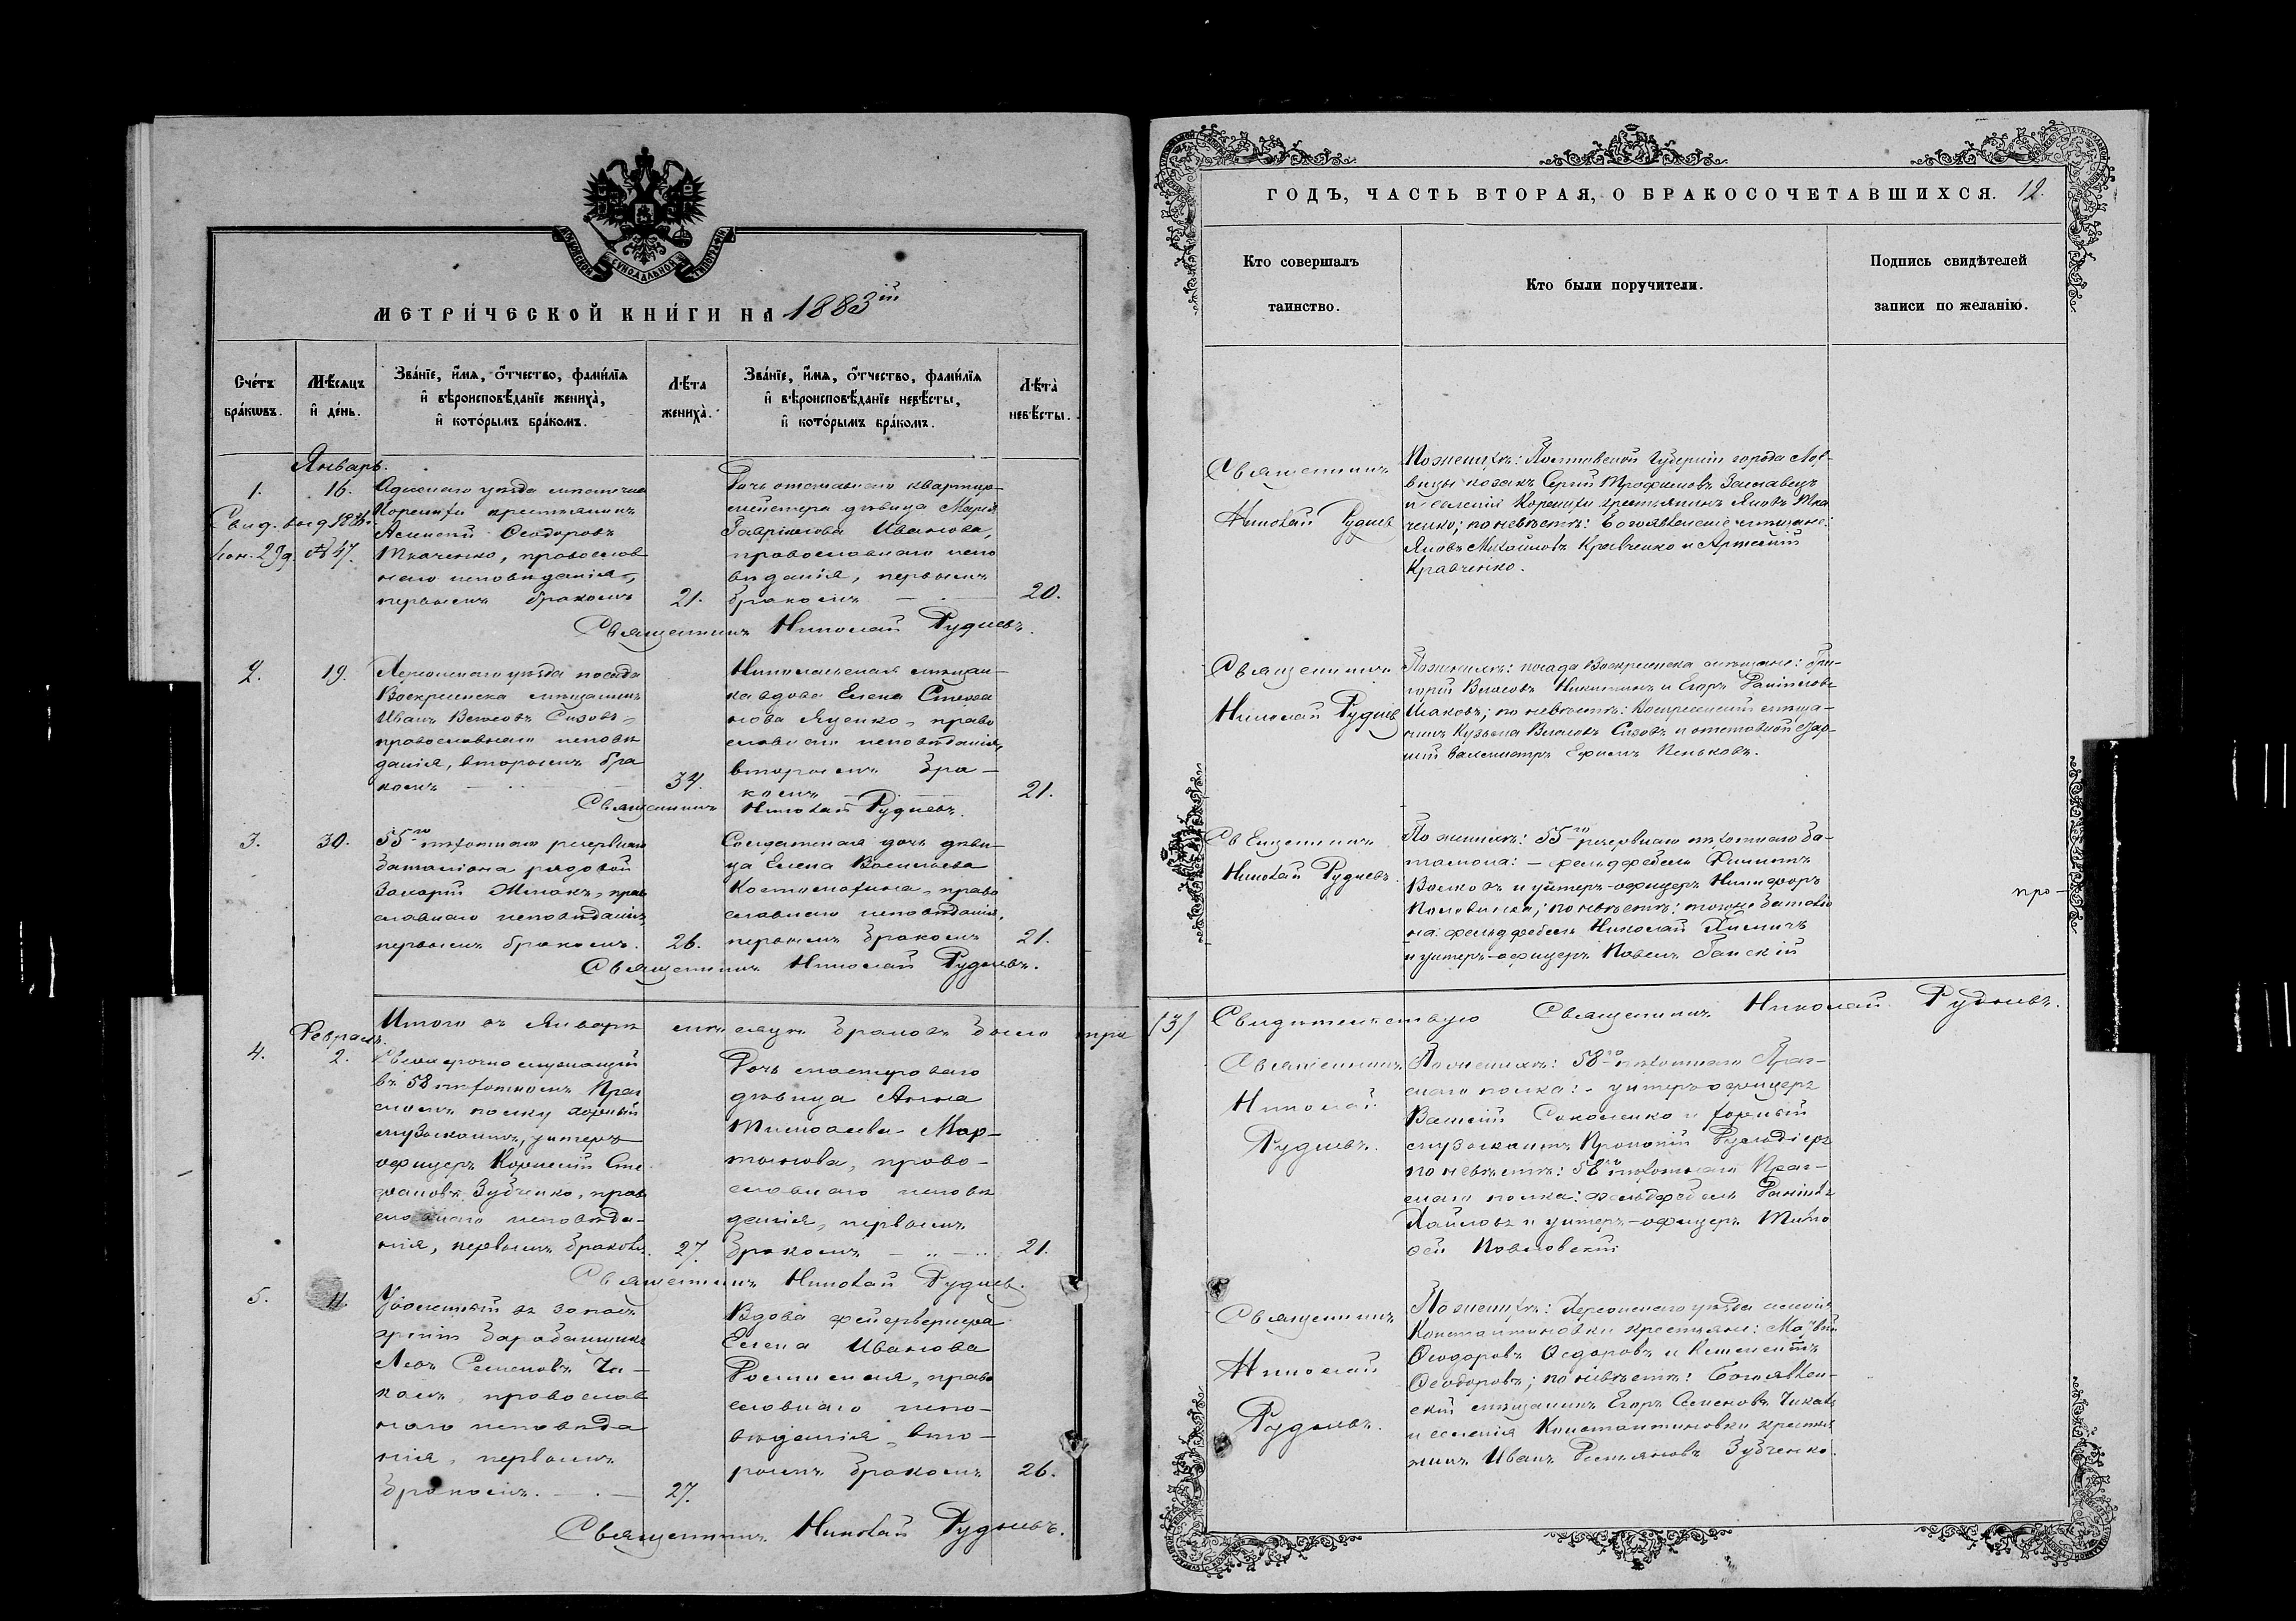 МОСКОВСКОЙ СѴНОДАЛЬНОЙ ТИПОГРАФІИ
МЕТРИ́ЧЕСКОЙ КНИ́ГИ НА 1883ій
Сче́тъ бра́кѡвъ.
Мѣ́сяцъ и҆ де́нь.
Зва́нїе, и҆́мѧ, ѻ҆́тчество, фами́лїѧ
и҆ вѣроисповѣ́данїе жениха̀,
и҆ кото́рымъ бра́комъ.
Лѣ́та жениха̀.
Зва́нїе, и҆́мѧ, ѻ҆́тчество, фами́лїѧ
и҆ вѣроисповѣ́данїе невѣ́сты,
и҆ кото́рымъ бра́комъ.
Лѣ́та невѣ́сты.
Январь.
1.
16.
Одесскаго уѣзда
Корениха крестьянинъ
Ѳеодоровъ
Ткаченко, православ
наго исповѣданія,
первымъ бракомъ
21.
Дочь отставнаго квартир-
мейстера дѣвица Марія
Гавріилова Иванова,
православнаго испо
вѣданія, первымъ
бракомъ
20.
№ 47.
Священникъ Николай Рудневъ.
2.
19.
Херсонскаго уѣзда посада
Воскресенска мѣщанинъ
Иванъ Власовъ Сизовъ,
православнаго исповѣ
данія, вторымъ бра
комъ
34.
Николаевская мѣщан-
ка вдова Елена Стефа
нова Яценко, право
славнаго исповѣданія,
вторымъ бра-
комъ
21.
Священникъ Николай Рудневъ.
3.
30.
55го пѣхотнаго резервнаго
баталіона рядовой
Захарій, право
славнаго исповѣданія,
первымъ бракомъ.
26.
Солдатская дочь дѣви-
ца Елена Васильева
право
славнаго исповѣданія,
первымъ бракомъ
21.
Священникъ Николай Рудневъ.
Итого въ Январѣ мѣсяцѣ браковъ было три
Февраль.
4.
2.
служащій
въ 58 пѣхотномъ Праг
скомъ полку хорный
музыкантъ, унтеръ-
офицеръ Корнилій Сте
фановъ Зубченко, право
славнаго исповѣда-
нія, первымъ бракомъ.
27.
Дочь мастероваго
дѣвица Анна
Тимоѳеева Мар-
тынова, право-
славнаго исповѣ
данія, первымъ
бракомъ
21.
Священникъ Николай Рудневъ.
5.
11.
Уволенный въ запасъ
арміи барабанщикъ
Левъ Семеновъ Чи-
каль, православ
наго исповѣда
нія, первымъ
бракомъ.
27.
Вдова фейерверкера
Елена Иванова
право
славнаго испо-
вѣданія, вто-
рымъ бракомъ
26.
Священникъ Николай Рудневъ.
ГОДЪ, ЧАСТЬ ВТОРАЯ, О БРАКОСОЧЕТАВШИХСЯ. 12.
Кто совершалъ
таинство.
Кто были поручители.
Подпись свидѣтелей
записи по желанію.
Священникъ
Николай Рудневъ
По женихѣ: Полтавской губерніи города
козакъ Сергій Трофимовъ
и селенія Корениха крестьянинъ Яковъ Тка
ченко; по невѣстѣ: Богоявленскіе мѣщане:
Яковъ Михайловъ Кравченко и Артемій
Кравченко.
Священникъ
Николай Рудневъ
По женихѣ: посада Воскресенска мѣщане: Гри-
горій Власовъ Никитинъ и Егоръ Даніиловъ
Исаковъ; по невѣстѣ: Воскресенскій мѣща-
нинъ Кузьма Власовъ Сизовъ и отставной стар-
шій вахмистръ Ефимъ Пеньковъ.
Священникъ
Николай Рудневъ.
По женихѣ: 55го резервнаго пѣхотнаго ба-
таліона: - фельдфебель Филиппъ
Волковъ и унтеръ-офицеръ Никифоръ
Половинка; по невѣстѣ: того же баталіо
на: фельдфебель Николай
и унтеръ-офицеръ Павелъ
про-
/3/ Свидѣтельствую Священникъ Николай Рудневъ.
Священникъ
Николай
Рудневъ.
По женихѣ: 58го пѣхотнаго Праг-
скаго полка: - унтеръ-офицеръ
Василій Соколенко и хорный
музыкантъ Прокопій
по невѣстѣ: 58го пѣхотнаго Праг-
скаго полка: фельдфебель Даніилъ
и унтеръ-офицеръ Тимо
ѳей Павловскій.
Священникъ
Николай
Рудневъ.
По женихѣ: Херсонскаго уѣзда селенія
Константиновки крестьяне:
Ѳеодоровъ Ѳедоровъ и Климентъ
Ѳеодоровъ; по невѣстѣ: Богоявлен-
скій мѣщанинъ Егоръ Семеновъ Чикаль
и селенія Константиновки крестья
нинъ Иванъ Зубченко.